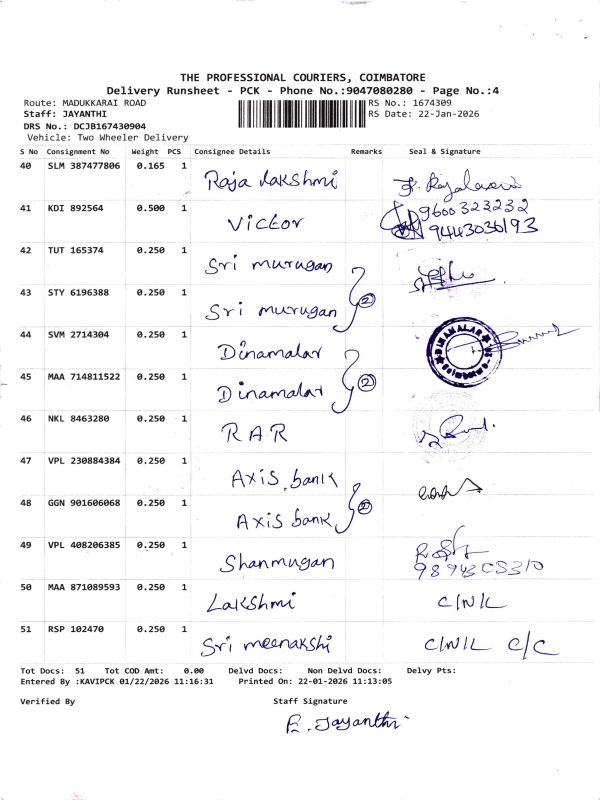 THE PROFESSIONAL COURIERS, COIMBATORE
Delivery Runsheet - PCK - Phone No.:9047080280 - Page No.:4
Route: MADUKKARAI ROAD RS No.: 1674309
Staff: JAYANTHI RS Date: 22-Jan-2026
DRS No.: DCJB167430904
Vehicle: Two Wheeler Delivery
S No Consignment No Weight PCS Consignee Details Remarks Seal & Signature
40 SLM 387477806 0.165 1 Raja Lakshmi
41 KDI 892564 0.500 1 Victor 9600323232
9443036193
42 TUT 165374 0.250 1 Sri murugan
2
43 STY 6196388 0.250 1 Sri murugan
44 SVM 2714304 0.250 1 Dinamalar DINAMALAR
2
45 MAA 714811522 0.250 1 Dinamalar
46 NKL 8463280 0.250 1 RAR
47 VPL 230884384 0.250 1 Axis bank
2
48 GGN 901606068 0.250 1 Axis bank
49 VPL 408206385 0.250 1 Shanmugan
50 MAA 871089593 0.250 1 Lakshmi C/N/L
51 RSP 102470 0.250 1 Sri meenakshi C/N/L C/C
Tot Docs: 51 Tot COD Amt: 0.00 Delvd Docs: Non Delvd Docs: Delvy Pts:
Entered By :KAVIPCK 01/22/2026 11:16:31 Printed On: 22-01-2026 11:13:05
Verified By Staff Signature
E. Jayanthi